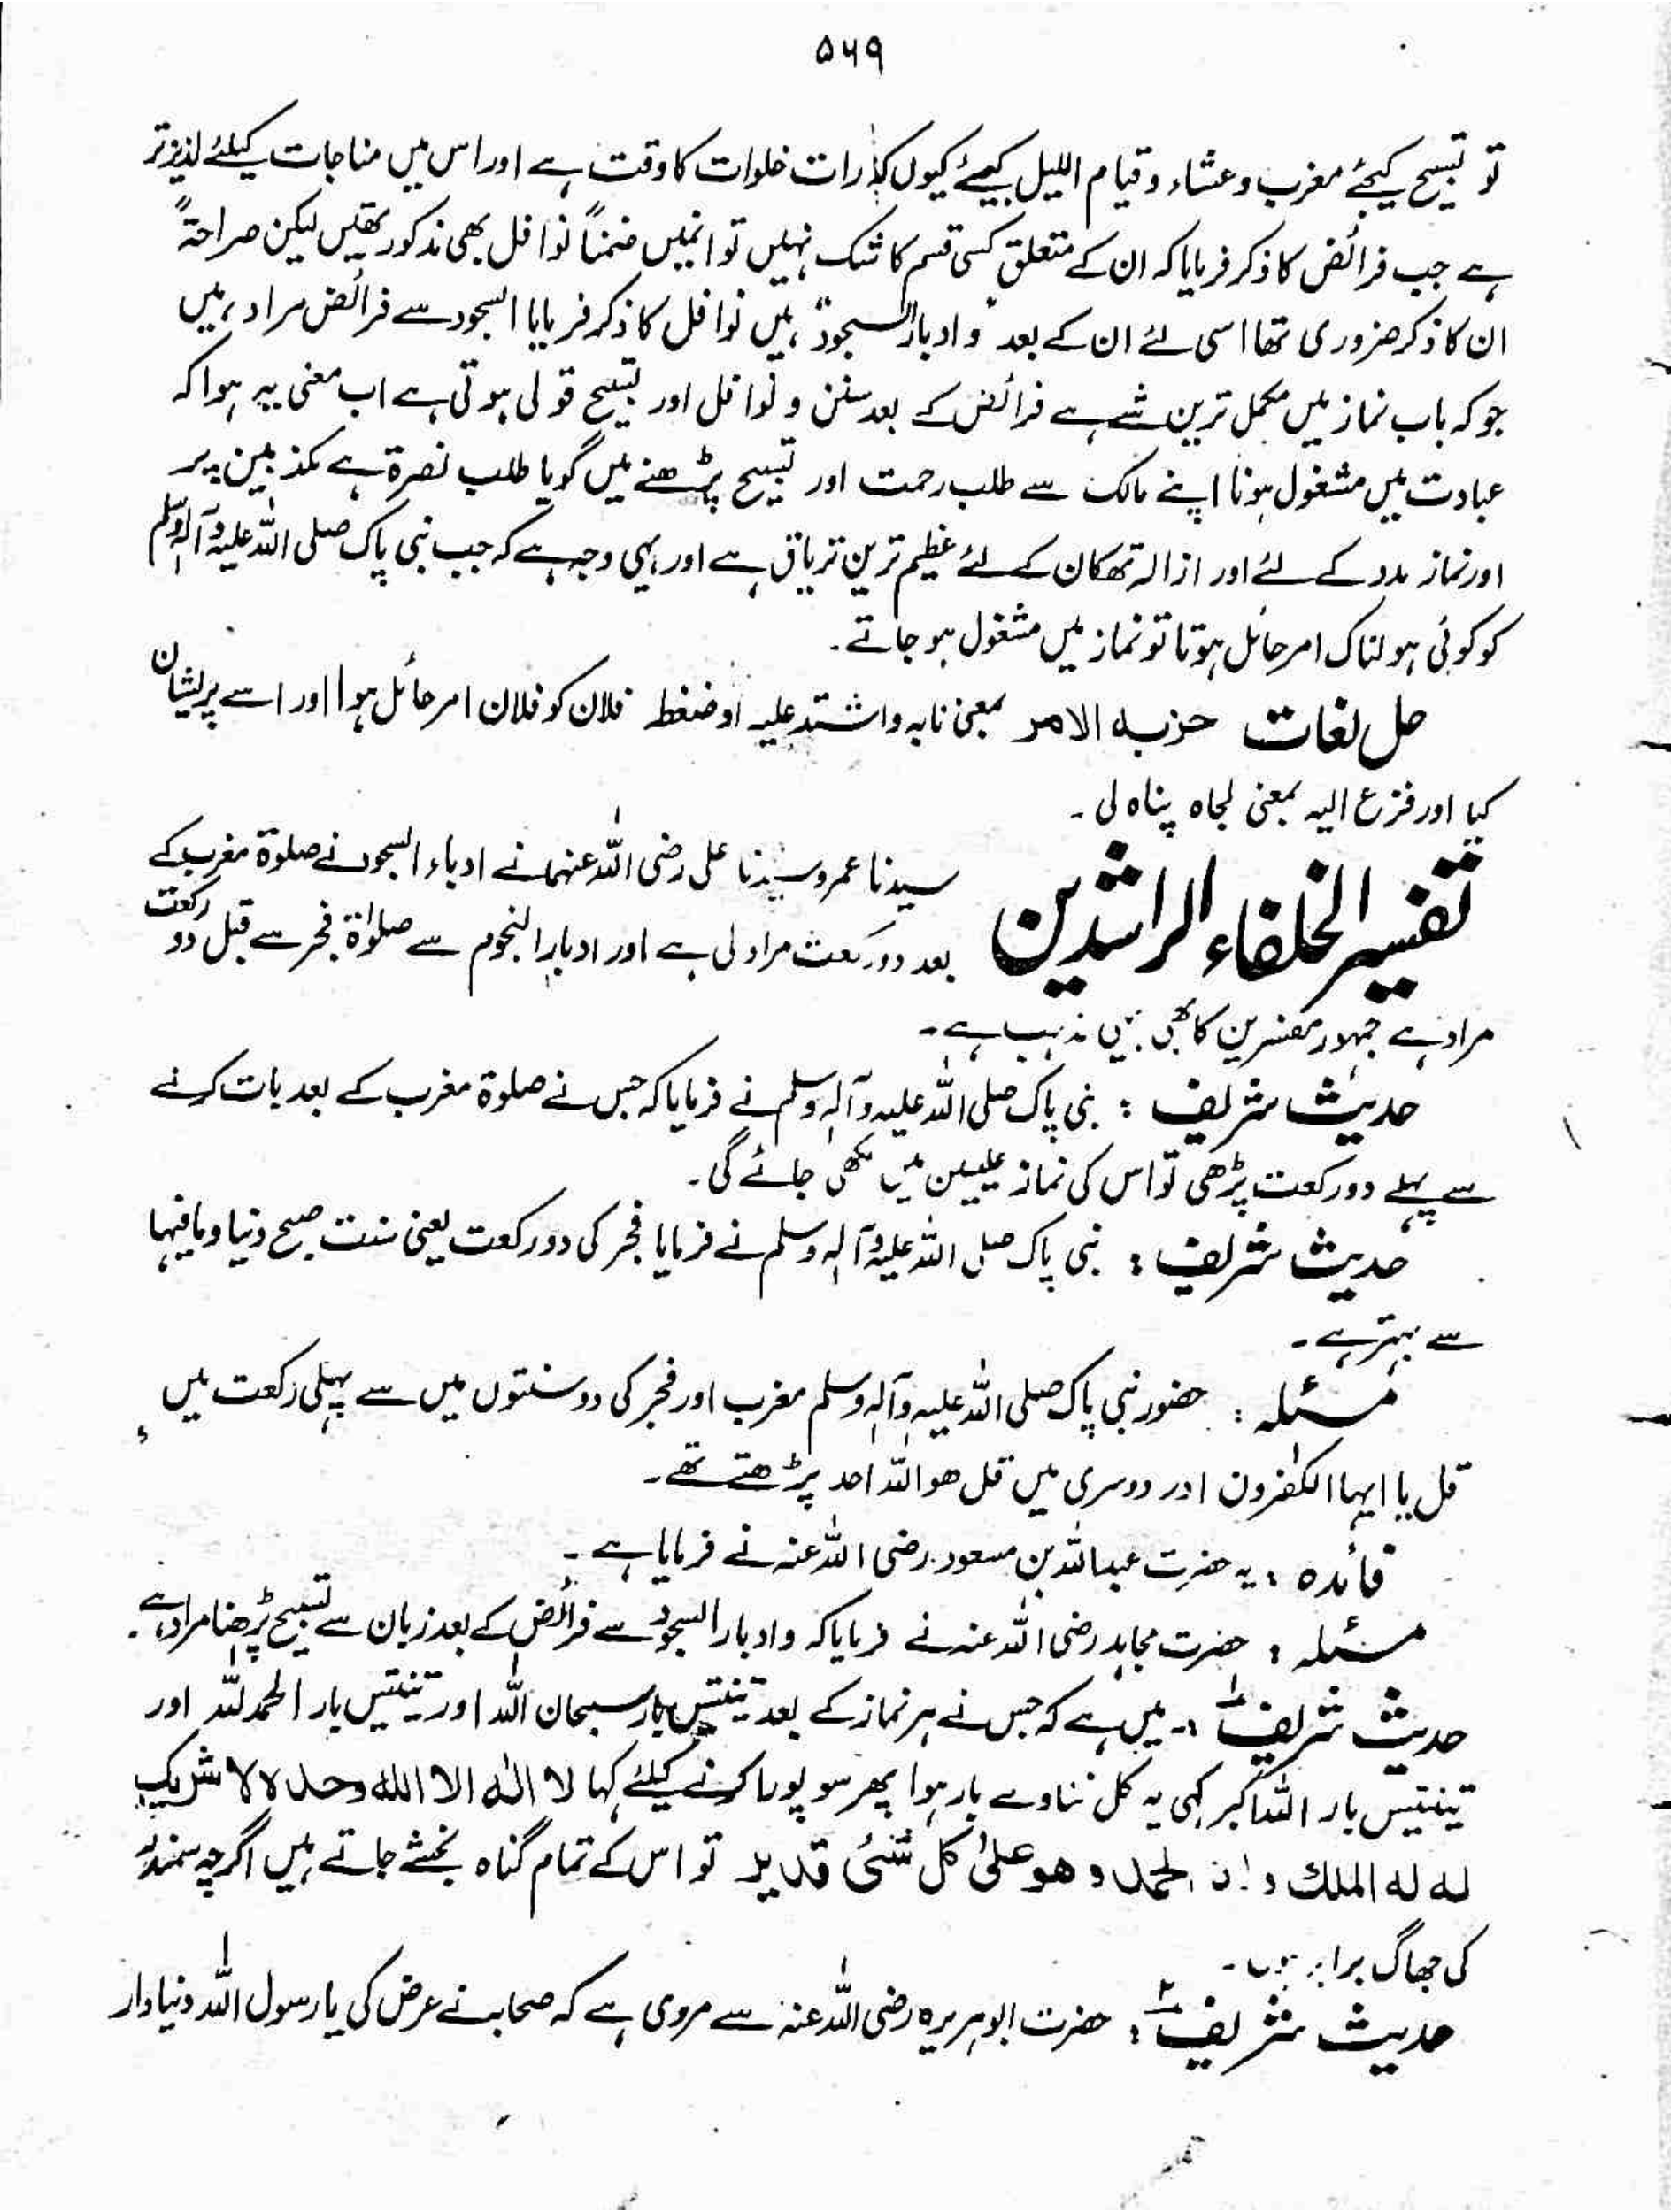 ۵۶۹
تو تسبیح کیجئے مغرب و عشاء و قیام اللیل کیجئے کیوں کہ رات خلوات کا وقت ہے اور اس میں مناجات کیلئے لذیز تر
ہے جب فرائض کا ذکر فرمایا کہ ان کے متعلق کسی قسم کا شک نہیں تو انمیں ضمناً نوافل بھی مذکور تھیں لیکن صراحۃً
ان کا ذکر ضروری تھا اسی لئے ان کے بعد "و ادبار السجود" میں نوافل کا ذکر فرمایا السجود سے فرائض مراد ہیں
جو کہ باب نماز میں مکمل ترین شے ہے فرائض کے بعد سنن و نوافل اور تسبیح قولی ہوتی ہے اب معنی یہ ہوا کہ
عبادت میں مشغول ہونا اپنے مالک سے طلب رحمت اور تسبیح پڑھنے میں گویا طلب نصرۃ ہے مکذبین پر
اور نماز مدد کے لئے اور ازالہ تھکان کے لئے عظیم ترین تریاق ہے اور یہی وجہ ہے کہ جب نبی پاک صلی اللہ علیہ وآلہٖ وسلم
کو کوئی ہولناک امر حائل ہوتا تو نماز میں مشغول ہو جاتے۔
حل لغات حزبہ الامر بمعنی نابہ واشتد علیہ او ضغط فلان کو فلان امر حائل ہوا اور اسے پریشان
کیا اور فزع الیہ بمعنی لجاہ پناہ لی۔
تفسیر الخلفاء الراشدین سیدنا عمر و سیدنا علی رضی اللہ عنہما نے ادباء السجود نے صلوۃ مغرب کے
بعد دو رکعت مراد لی ہے اور ادبار النجوم سے صلوٰۃ فجر سے قبل دو رکعت
مراد ہے جمہور مفسرین کا بھی یہی مذہب ہے۔
حدیث شریف : نبی پاک صلی اللہ علیہ وآلہٖ وسلم نے فرمایا کہ جس نے صلوۃ مغرب کے بعد بات کرنے
سے پہلے دو رکعت پڑھی تو اس کی نماز علیین میں لکھی جائے گی۔
حدیث شریف : نبی پاک صلی اللہ علیہ وآلہٖ وسلم نے فرمایا فجر کی دو رکعت یعنی سنت صبح دنیا و مافیہا
سے بہتر ہے۔
مسئلہ : حضور نبی پاک صلی اللہ علیہ وآلہٖ وسلم مغرب اور فجر کی دو سنتوں میں سے پہلی رکعت میں
قل یا ایہا الکٰفرون اور دوسری میں قل ھو اللہ احد پڑھتے تھے۔
فائدہ : یہ حضرت عبداللہ بن مسعود رضی اللہ عنہ نے فرمایا ہے۔
مسئلہ : حضرت مجاہد رضی اللہ عنہ نے فرمایا کہ وادبار السجود سے فرائض کے بعد زبان سے تسبیح پڑھنا مراد ہے۔
حدیث شریف ۱ :۔ میں ہے کہ جس نے ہر نماز کے بعد تینتیس بار سبحان اللہ اور تینتیس بار الحمد للہ اور
تینتیس بار اللہ اکبر کہی یہ کل ننانوے بار ہوا پھر سو پورا کرنے کیلئے کہا لا الٰہ الا اللہ وحدہ لا شریک
لہ لہ الملک و الحمد و ھو علیٰ کل شئی قدیر تو اس کے تمام گناہ بخشے جاتے ہیں اگرچہ سمندر
کی جھاگ برابر ہوں۔
حدیث شریف ۲ : حضرت ابوہریرہ رضی اللہ عنہ سے مروی ہے کہ صحابہ نے عرض کی یا رسول اللہ دنیا دار